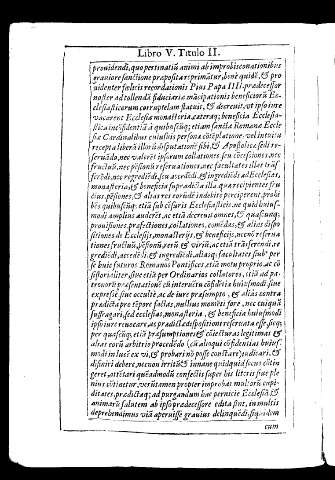 Libro V. Titulo II.
prouidendi, quo pertinatiũ animi ab improbis conationibus
grauiore sanctione propositæ: primãtur, bonę quidẽ, & pro
uidenter fælicis recordationis Pius Papa IIII. prædecessor
noster ad tollendã fiduciariæ mãcipationis beneficiorũ Ec-
clesiasticorum corruptelam statuit, & decreuit, vt ipso iure
vacarent Ecclesiæ monasteria, cæteraq; beneficia Ecclesia-
stica in cõfidentia à quibuscũq; etiam sanctæ Romanæ Eccle
siæ Cardinalibus cuiusuis personæ cõtẽplatione, vel intuitu
recepta liberã illorũ dispositionẽ sibi, & Apostolicæ sedi re-
seruãdo, nec valerẽt ipsarum collationes, seu cõcessiones, nec
fructuũ, nec pẽsionũ reseruationes, nec facultates illas trãs-
ferẽdi, nec regrediẽdi, seu accedẽdi, & ingrediẽdi ad Ecclesias,
monasteria, & beneficia supradicta illa qua reciperentes fru
ctus, pẽsiones, & alias res eorũdẽ indebitè perciperent, prohi
bẽs quibuscũq; etiã sub cẽsuris Ecclesiasticis, ne quid huius-
modi amplius auderẽt, ac etiã decreuit omnes, & quascunq;
prouisiones, præfectiones, collationes, comẽdas, & alias dispo
sitiones de Ecclesijs, monasterijs, & beneficijs, necnõ reserua
tiones fructuũ, pẽsionũ, rerũ & viriũ, ac etiã trãsferendi, re
grediẽdi, accedẽdi, & ingrediẽdi, aliasq; facultates sub per
se huic futuros Romanos Pontifices etiã motu proprio, ac cõ
sistorialiter, siue etiã per Ordinarios collatores, etiã ad pa-
tronorũ præsentationẽ cũ interuẽtu cõfidẽtiæ huiusmodi siue
expressè siue occultè, ac de iure præsumpto, & aliàs contra
prædicta pro tẽpore factas, nullius momẽti fore, nec cuiquã
suffragari, sed ecclesias, monasteria, & beneficia huiusmodi
ipso iure vacare, ac prædictæ dispositioni reseruata esse, sicq;
per quascũq; etiã præsumptiones, & cõiecturas legitimas &
alias eorũ arbitrio procedẽdo (cũ alioqui cõfidentiæ huius-
modi in luce vix, & probari nõ posse constare) iudicari, &
diffiniri debere, necnon irritũ & inane quidquid secus cõtin
geret, attẽtari quẽadmodũ confectis super his literis suæ ple
nius cõtinetur, veruntamen propter improbas multorũ cupi
ditates, prædictaq; ad purgandum hac pernicie Ecclesiã &
animarũ salutem ab ipso prædecessore edita sint, in multis
deprehendimus viã aperuisse grauius delinquẽdi, siquidem
cum